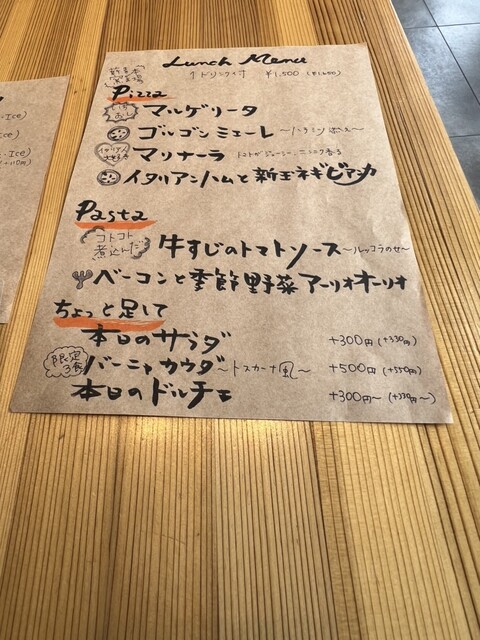 Lunch Menu
1ドリンク付 ¥1,500 (¥1,650)
Pizza
マルゲリータ
ゴルゴンミエーレ
マリナーラ トマトがジューシー、ニンニク香る
イタリアンハムと新玉ネギビアンカ
Pasta
コトコト煮込んだ 牛すじのトマトソース ～ルッコラのせ～
ベーコンと季節野菜アーリオオーリオ
ちょっと足して
本日のサラダ +300円 (+330円)
限定3食 バーニャカウダ ～トスカーナ風～ +500円 (+550円)
本日のドルチェ +300円～ (+330円～)